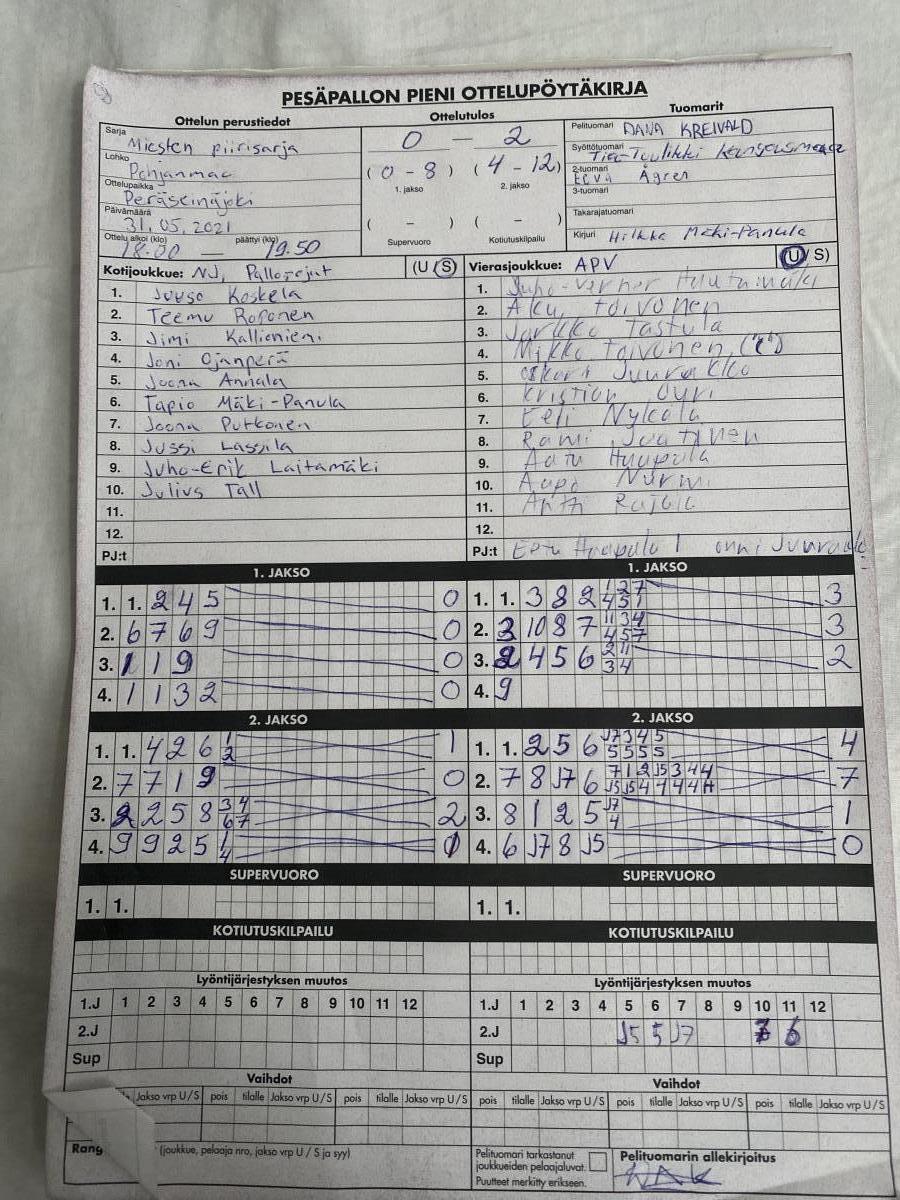 PESÄPALLON PIENI OTTELUPÖYTÄKIRJA
Ottelun perustiedot
Ottelutulos
Tuomarit
Sarja Miesten piirisarja
0 - 2
Pelituomari DANA KREIVALD
Lohko Pohjanmaa
(0 - 8) (4 - 12)
Syöttötuomari Tiia-Tuulikki
1. jakso 2. jakso
2-tuomari Eeva Ågren
Ottelupaikka Peräseinäjoki
3-tuomari
Päivämäärä 31.05.2021
( - ) ( - )
Takarajatuomari
Ottelu alkoi (klo) 18.00 — päättyi (klo) 19.50
Supervuoro Kotiutuskilpailu
Kirjuri Hilkka Mäki-Panula
Kotijoukkue: NJ, (U S)
Vierasjoukkue: APV (U/S)
1. Juuso Koskela
2. Teemu Roponen
3. Jimi Kallioniemi
4. Joni Ojanperä
5. Joona Annala
6. Tapio Mäki-Panula
7. Joona Putkonen
8. Jussi Lassila
9. Juho-Erik Laitamäki
10. Julius Tall
11.
12.
PJ:t
1. Juho-Verner Hautamäki
2. Aku Toivonen
3. Jarkko Tastula
4. Mikko Toivonen, (C)
5. Oskari Juurakko
6. Kristian
7. Eeli Nykola
8. Rami
9. Aatu Haapala
10. Aapo Nurmi
11. Antti
12.
PJ:t Eetu Haapala 1 onni Juurakko
1. JAKSO
1. 1. 2 4 5 0
2. 6 7 6 9 0
3. 1 1 9 0
4. 1 1 3 2 0
1. JAKSO
1. 1. 3 8 2 1 3 7 4 5 1 3
2. 3 10 8 7 11 3 4 4 5 7 3
3. 2 4 5 6 2 11 3 4 2
4. 9
2. JAKSO
1. 1. 4 2 6 1 2 1
2. 7 7 1 9 0
3. 2 2 5 8 3 4 6 7 2
4. 9 9 2 5 1 4
2. JAKSO
1. 1. 2 5 6 J7 3 4 5 5 5 5 5 4
2. 7 8 J7 6 7 1 2 J5 3 4 4 J5 J5 4 4 4 4 H 7
3. 8 1 2 5 J7 4 1
4. 6 J7 8 J5 0
SUPERVUORO
1. 1.
SUPERVUORO
1. 1.
KOTIUTUSKILPAILU
KOTIUTUSKILPAILU
Lyöntijärjestyksen muutos
1.J 1 2 3 4 5 6 7 8 9 10 11 12
2.J
Sup
Lyöntijärjestyksen muutos
1.J 1 2 3 4 5 6 7 8 9 10 11 12
2.J J5 5 J7 6
Sup
Vaihdot
Jakso vrp U/S pois tilalle Jakso vrp U/S pois tilalle Jakso vrp U/S
Vaihdot
pois tilalle Jakso vrp U/S pois tilalle Jakso vrp U/S pois tilalle Jakso vrp U/S
Rang (joukkue, pelaaja nro, jakso vrp U / S ja syy)
Pelituomari tarkastanut
joukkueiden pelaajaluvat.
Puutteet merkitty erikseen.
Pelituomarin allekirjoitus